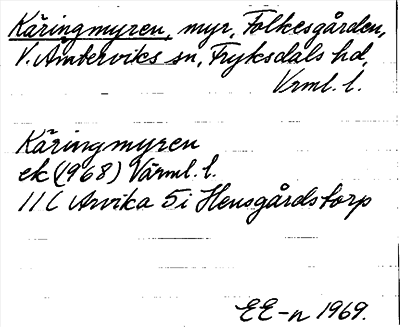 Käringmyren, myr, Folkesgården,
V. Ämterviks sn, Fryksdals hd,
Vrml. l.
Käringmyren
ek (1968) Värml. l.
11 C Arvika 5 i Hensgårdstorp
EE-n 1969.